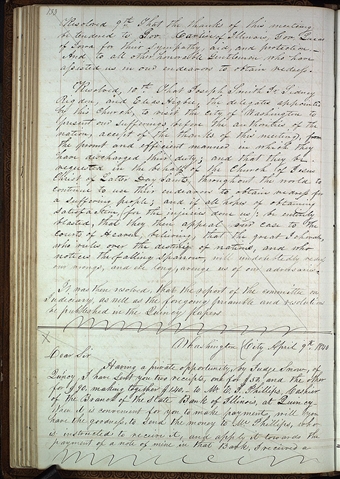 Resolved 9th That the thanks of this meeting
be tendered to Gov. Carlin, of Illinois, Gov. Lucas
of Iowa for their sympathy, aid, and protection –
And to all other honorable Gentlemen, who have
assisted us in our endeavors to obtain redress.
Resolved, 10th That Joseph Smith Jr. Sidney
Rigdon, and Elias Higbee, the delegates appointed
by this Church, to visit the City of Washington to
present our sufferings before the authorities of the
nation, accept of the thanks of this meeting, for
the prompt and efficient manner in which they
have discharged their duty; and that they be
requested in the behalf of the Church of Jesus
Christ of Latter Day Saints, throughout the world to
continue to use their endeavors to obtain redress for
a suffering people; and if all hopes of obtaining
satisfaction (for the injuries done us) be entirely
blasted, that they then appeal our case to the
Courts of Heaven, believing that the great Jehovah,
who rules over the destiny of nations, and who
notices the falling sparrow, will undoubtedly
our wrongs, and ere long, avenge us of our adversaries.
It was then resolved, that the report of the committee on
Judiciary, as well as the foregoing preamble and resolutions
be published in the Quincy papers
Washington City April 9th 1840
Dear Sir
Having a private opportunity, by Judge Snow, of
Quincy I have sent you two receipts, one for and the other
for making together to Mr. Phillips Cashier
of the Branch of the State Bank of Illinois, at Quincy
it is convenient for you to make payment, will you
have the goodness, to send the money to Mr Phillips, who
is instructed to receive it, and apply it towards the
payment of a note of mine in that Bank, I received a